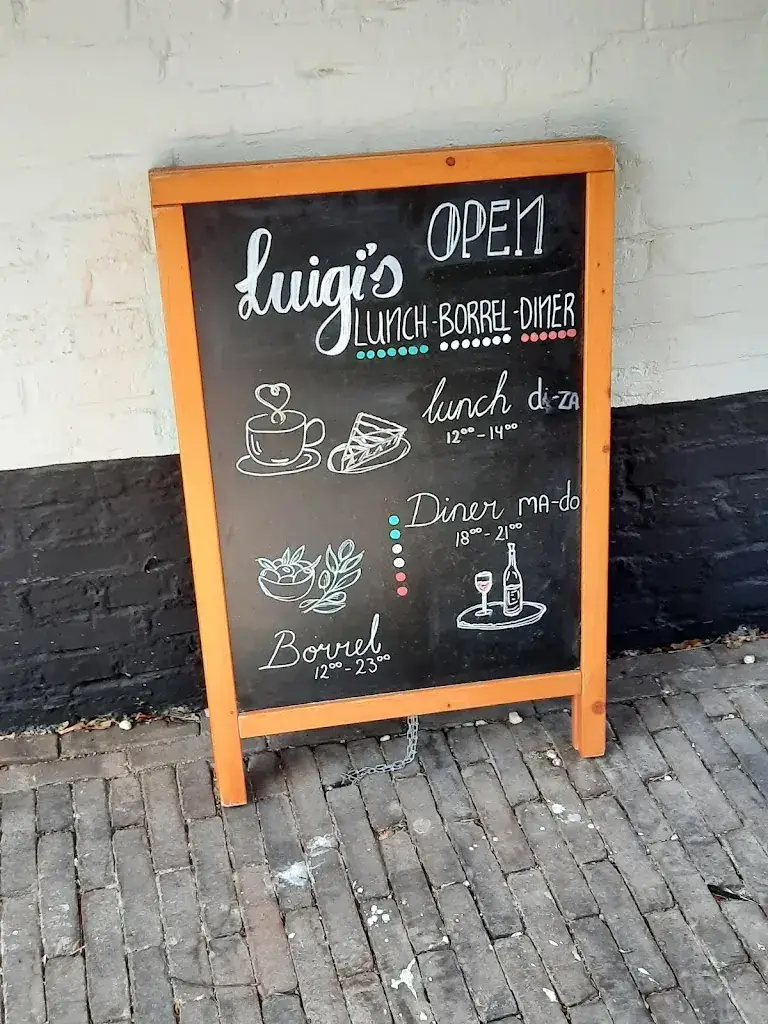 OPEN
Luigi's
LUNCH-BORREL-DINER
lunch di-ZA
12⁰⁰-14⁰⁰
Diner MA-do
18⁰⁰-21⁰⁰
Borrel
12⁰⁰-23⁰⁰